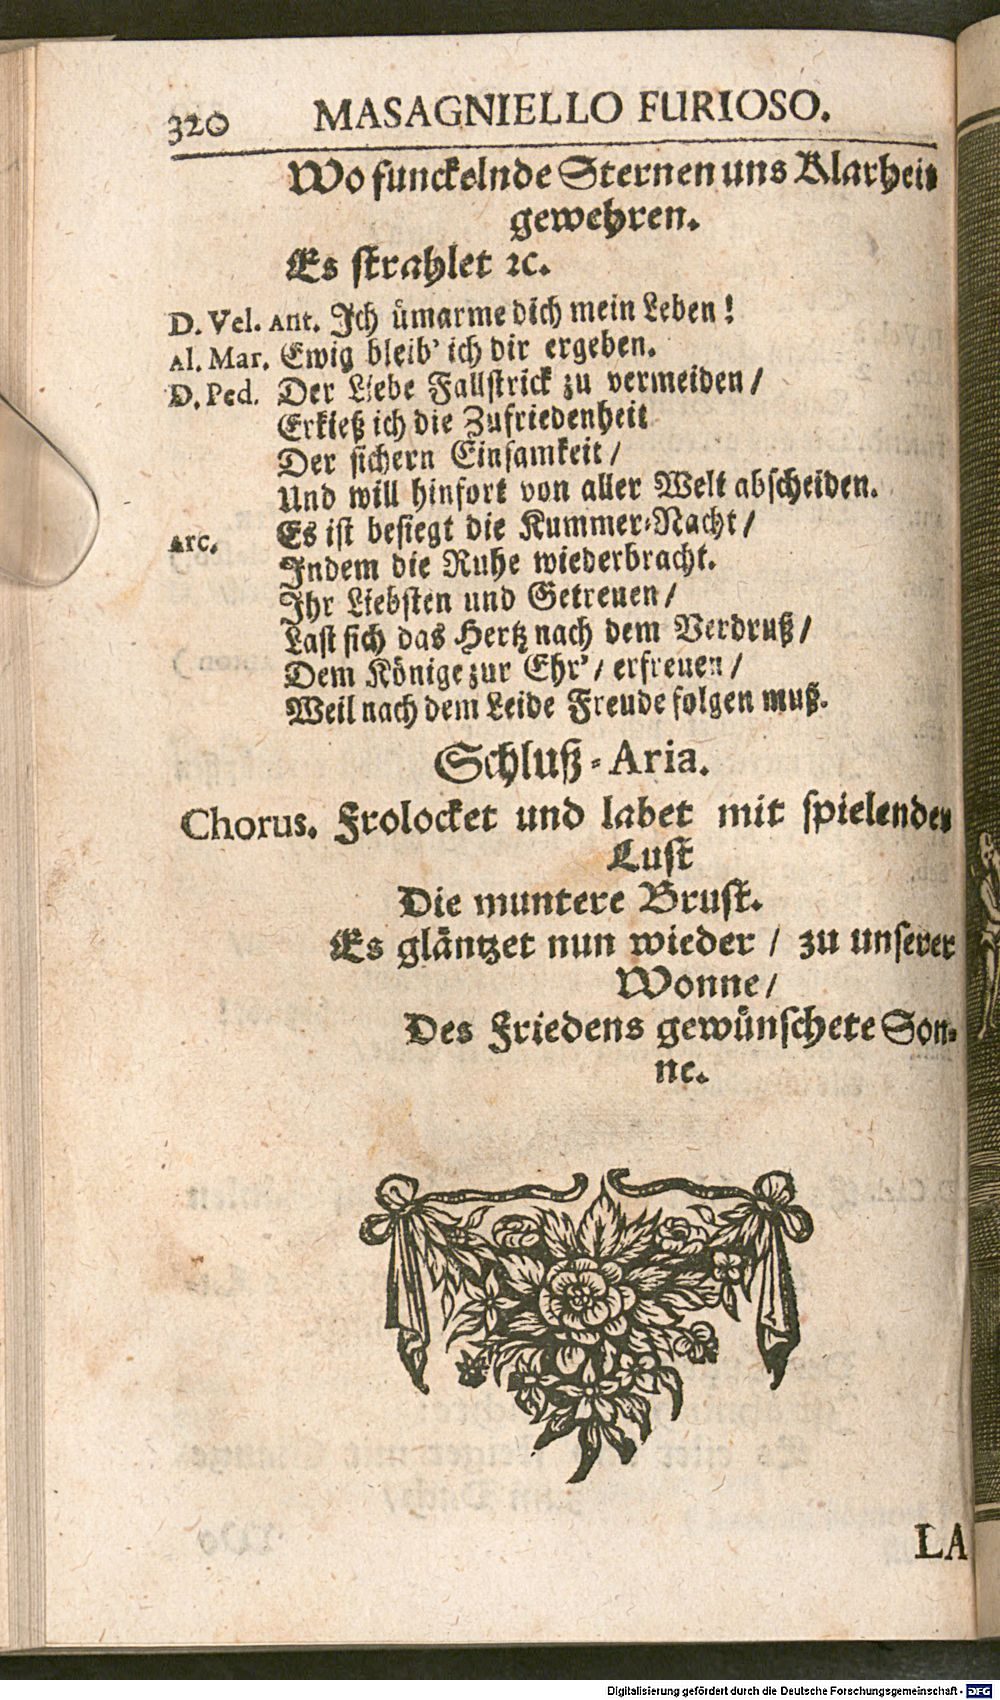 320 MASAGNIELLO FURIOSO.
Wo funckelnde Sternen uns Klarheit
gewehren.
Es strahlet ꝛc.
D. Vel. Ant. Ich ümarme dich mein Leben!
Al. Mar. Ewig bleib' ich dir ergeben.
D. Ped. Der Liebe Fallstrick zu vermeiden /
Erkieß ich die Zufriedenheit
Der sichern Einsamkeit /
Und will hinfort von aller Welt abscheiden.
Arc. Es ist besiegt die Kummer-Nacht /
Indem die Ruhe wiederbracht.
Ihr Liebsten und Getreuen /
Last sich das Hertz nach dem Verdruß /
Dem Könige zur Ehr' / erfreuen /
Weil nach dem Leide Freude folgen muß.
Schluß-Aria.
Chorus. Frolocket und labet mit spielender
Lust
Die muntere Brust.
Es gläntzet nun wieder / zu unserer
Wonne /
Des Friedens gewünschete Son-
ne.
LA
Digitalisierung gefördert durch die Deutsche Forschungsgemeinschaft - DFG